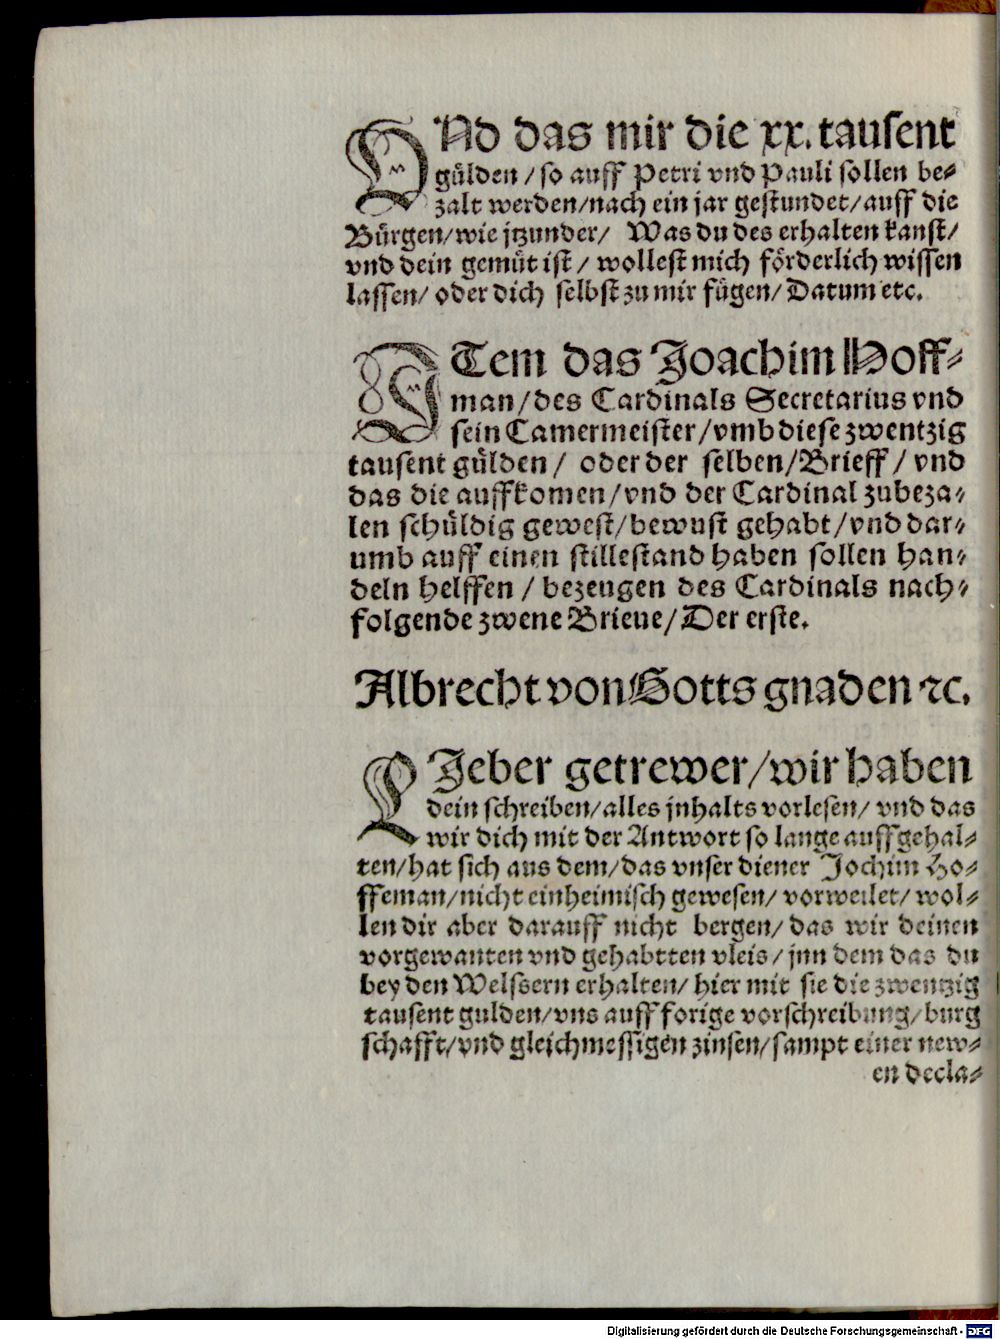 VNd das mir die xx. tausent
gülden / so auff Petri vnd Pauli sollen be⸗
zalt werden/nach ein jar gestundet/auff die
Bürgen/wie jtzunder/ Was du des erhalten kanst/
vnd dein gemüt ist / wollest mich förderlich wissen
lassen/ oder dich selbst zu mir fügen/Datum etc.
ITem das Joachim Hoff⸗
man/des Cardinals Secretarius vnd
sein Camermeister/vmb diese zwentzig
tausent gülden / oder der selben/Brieff / vnd
das die auffkomen/vnd der Cardinal zubeza⸗
len schüldig gewest/bewust gehabt/vnd dar⸗
umb auff einen stillestand haben sollen han⸗
deln helffen / bezeugen des Cardinals nach⸗
folgende zwene Brieue/Der erste.
Albrecht von Gotts gnaden ꝛc.
LIeber getrewer/wir haben
dein schreiben/alles jnhalts vorlesen/ vnd das
wir dich mit der Antwort so lange auffgehal⸗
ten/hat sich aus dem/das vnser diener Jochim Ho⸗
ffeman/nicht einheimisch gewesen/ vorweilet/ wol⸗
len dir aber darauff nicht bergen/das wir deinen
vorgewanten vnd gehabtten vleis/jnn dem das du
bey den Welssern erhalten/hier mit sie die zwentzig
tausent gulden/vns auff forige vorschreibung/burg
schafft/vnd gleichmessigen zinsen/sampt einer new⸗
en decla⸗
Digitalisierung gefördert durch die Deutsche Forschungsgemeinschaft - DFG